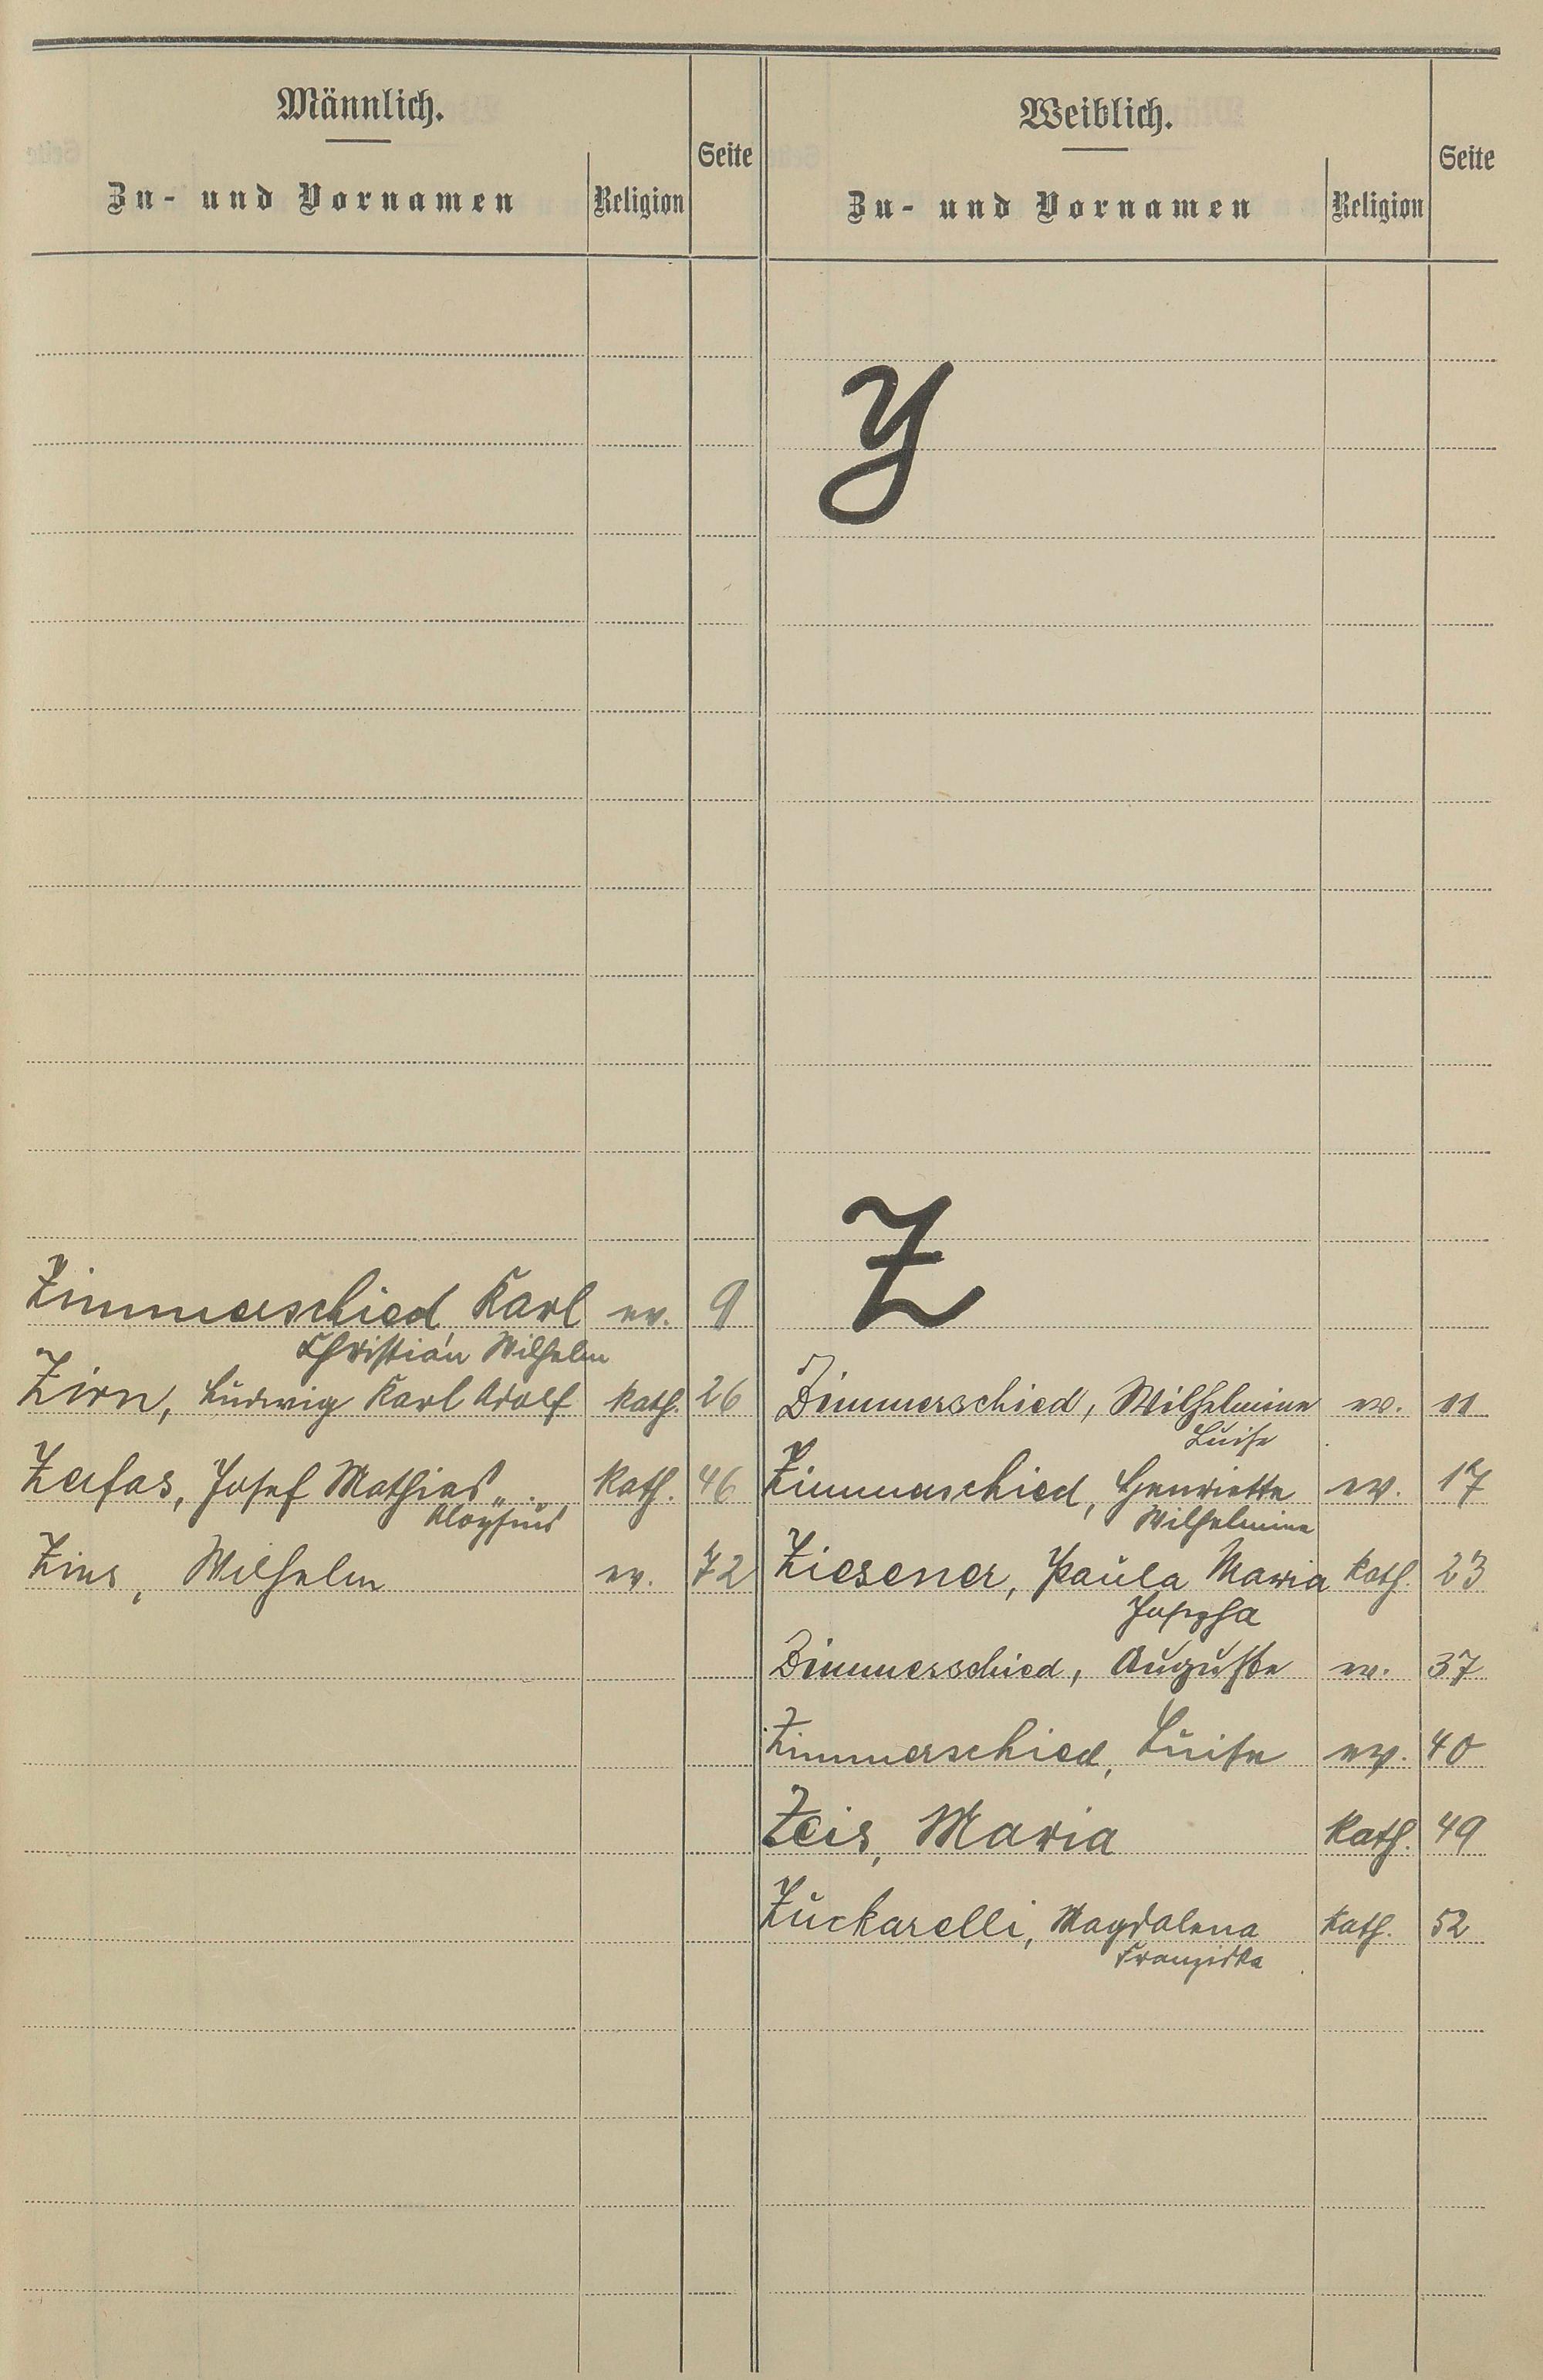 Männlich.
Zu- und Vornamen
Religion
Seite
Weiblich.
Zu- und Vornamen
Religion
Seite
Y
Z
Zimmerschied, Karl ev. 9
Christian Wilhelm
Zirn, Ludwig Karl Adolf kath. 26
Josef Mathias kath. 46
Aloysius
Zins, Wilhelm ev. 72
Zimmerschied, Wilhelmine ev. 11
Luise
Zimmerschied, Henriette ev. 17
Wilhelmine
Ziesener, Paula Maria kath. 23
Josepha
Zimmerschied, Auguste ev. 37
Zimmerschied, Luise ev. 40
Zeis, Maria kath. 49
Zuckarelli, Magdalena kath. 52
Franziska